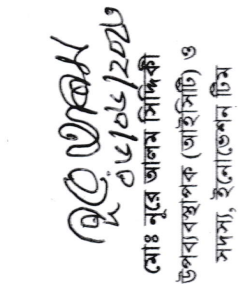 নূরে আলম
০৫/০৫/২০২৩
মোঃ নূরে আলম সিদ্দিকী
উপব্যবস্থাপক (আইসিটি) ও
সদস্য, ইনোভেশন টিম